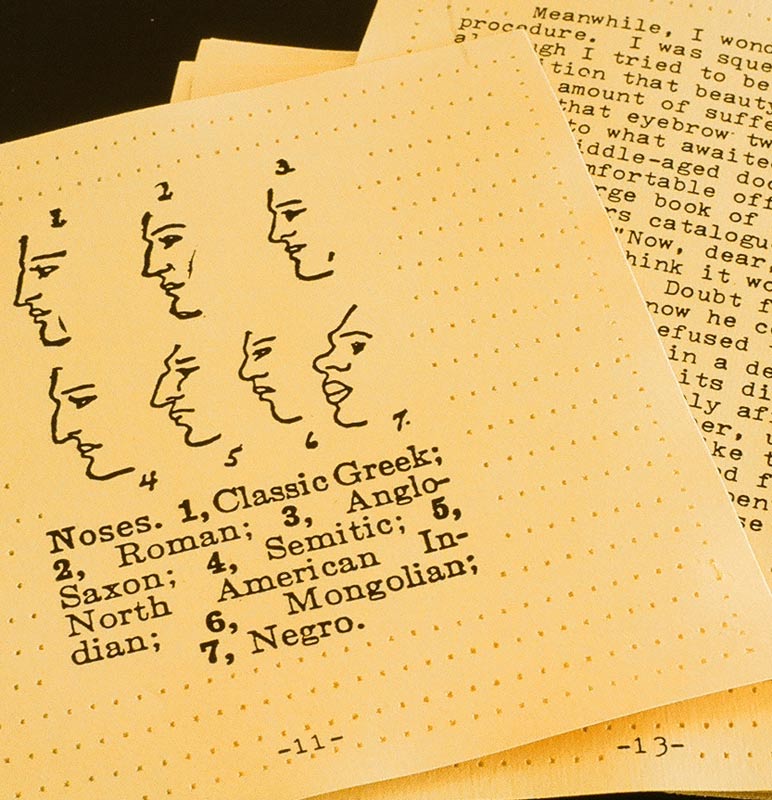 1 2 3
4 5 6 7.
Noses. 1, Classic Greek;
2, Roman; 3, Anglo-
Saxon; 4, Semitic; 5,
North American In-
dian; 6, Mongolian;
7, Negro.
-11-
Meanwhile, I wond
procedure. I was sque
ugh I tried to be
ition that beauty
amount of suffe
that eyebrow tw
to what awaited
iddle-aged doc
mfortable off
rge book of
rs catalogu
"Now, dear,
hink it wo
Doubt f
now he co
efused
in a de
its di
ly aff
er, u
ke t
d f
pen
se
-13-